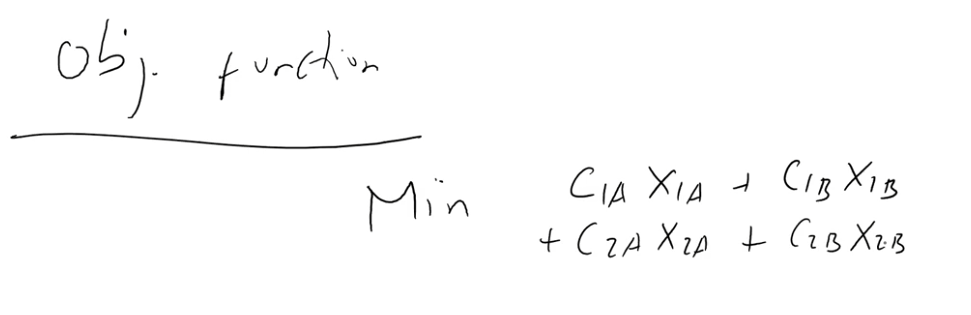 Obj. function
Min C1A X1A + C1B X1B
+ C2A X2A + C2B X2B